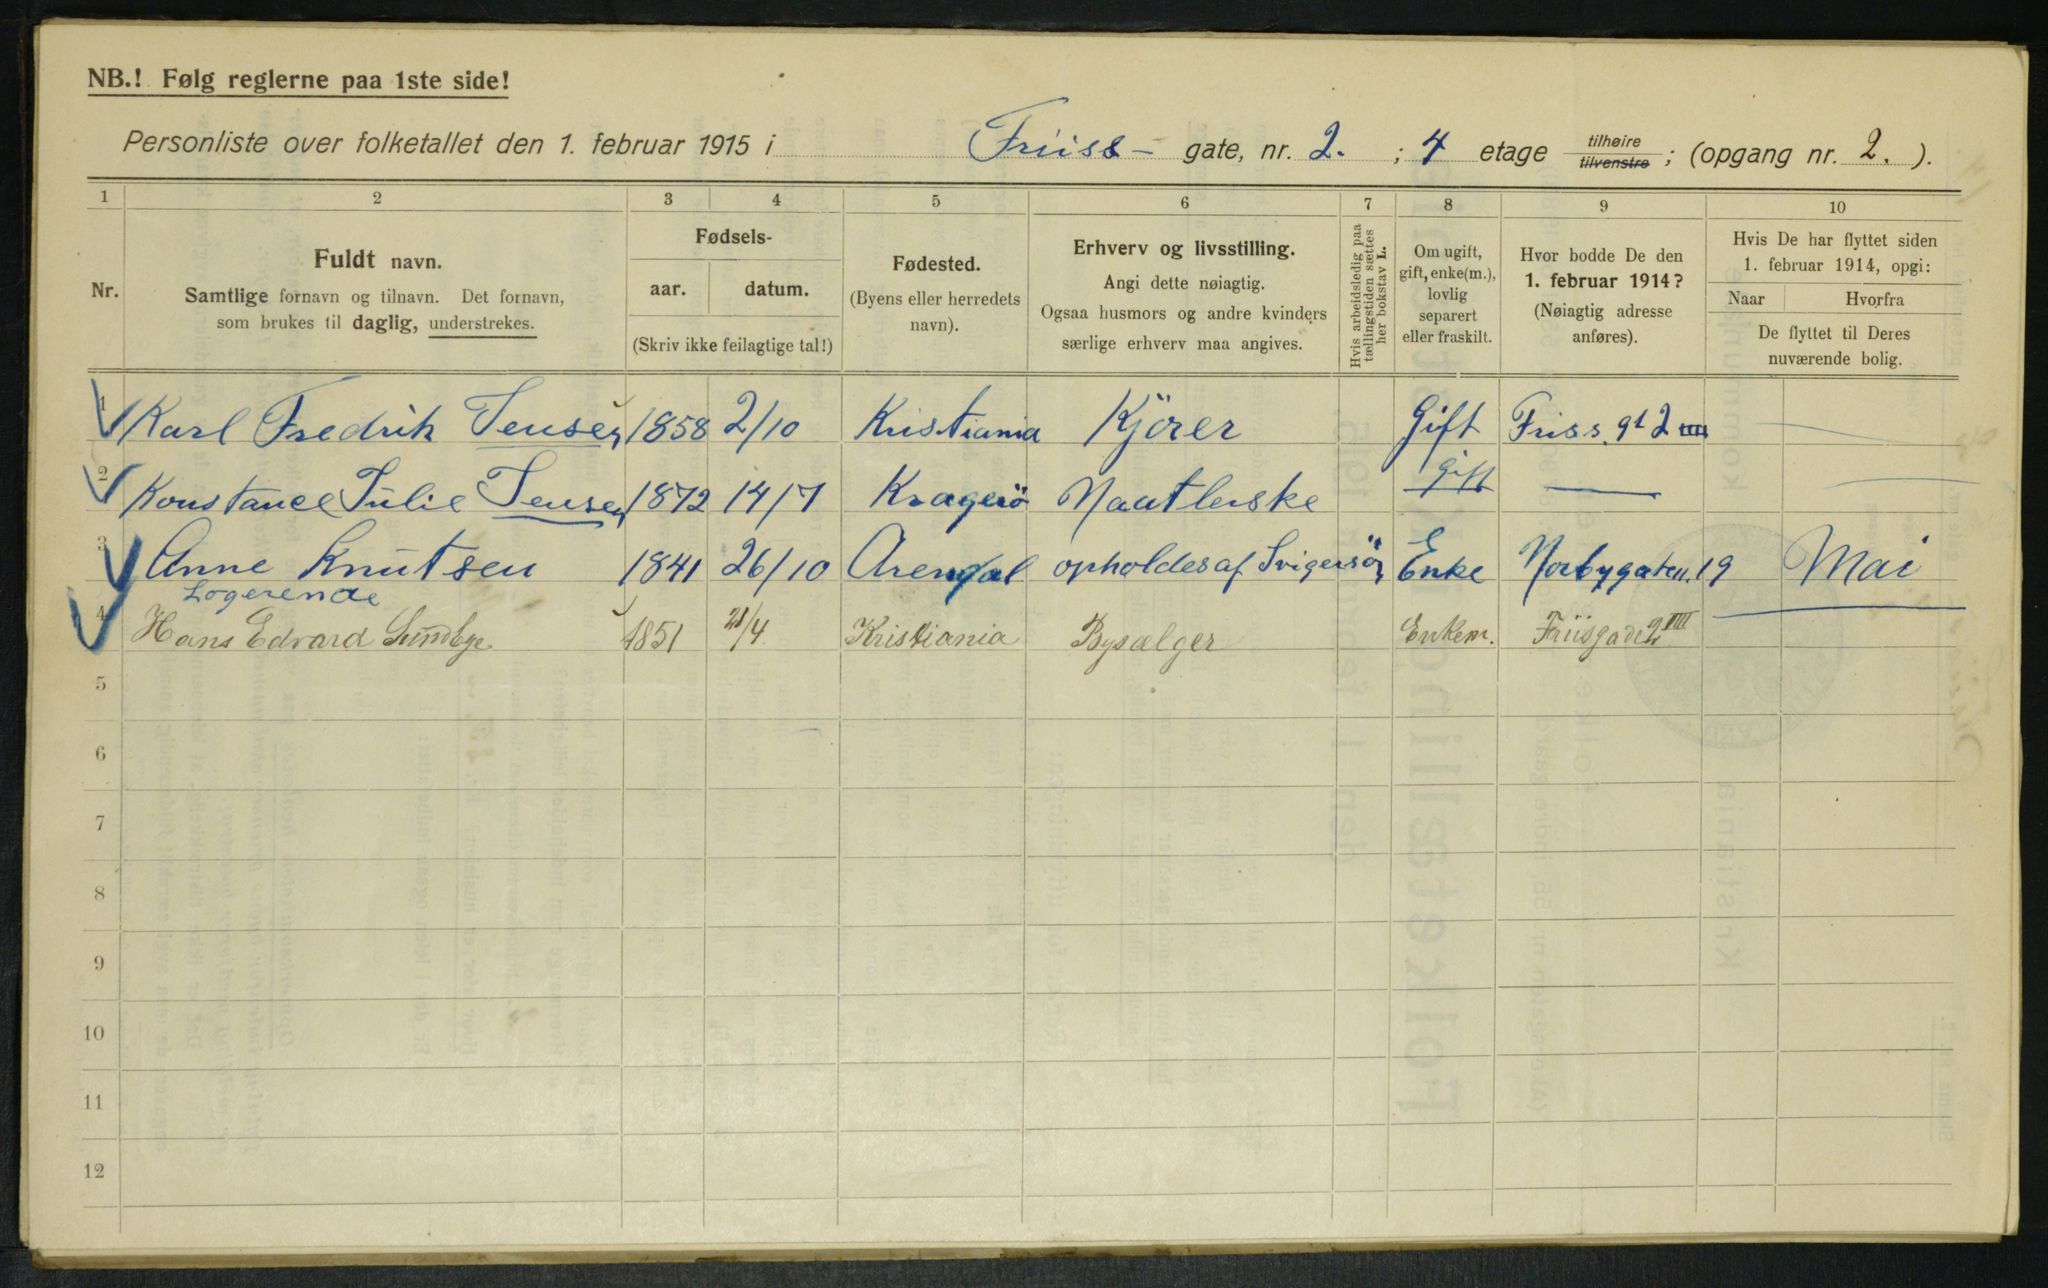 NB.! Følg reglerne paa 1ste side!
Personliste over folketallet den 1. februar 1915 i Friiss- gate, nr. 2. ; 4 etage tilhøire tilvenstre ; (opgang nr. 2. ).
1 2 3 4 5 6 7 8 9 10
Nr.
Fuldt navn.
Samtlige fornavn og tilnavn. Det fornavn,
som brukes til daglig, understrekes.
Fødsels-
aar. datum.
(Skriv ikke feilagtige tal!)
Fødested.
(Byens eller herredets
navn).
Erhverv og livsstilling.
Angi dette nøiagtig.
Ogsaa husmors og andre kvinders
særlige erhverv maa angives.
Hvis arbeidsledig paa
tællingstiden sættes
her bokstav L.
Om ugift,
gift, enke(m.),
lovlig
separert
eller fraskilt.
Hvor bodde De den
1. februar 1914?
(Nøiagtig adresse
anføres).
Hvis De har flyttet siden
1. februar 1914, opgi:
Naar Hvorfra
De flyttet til Deres
nuværende bolig.
1 Karl Fredrik Jensen 1858 2/10 Kristiania Kjörer Gift Friss. gt 2 IIII
2 Konstance Julie Jensen 1872 14/7 Kragerö Naatlerske Gift —
3 Anne Knutsen 1841 26/10 Arendal opholdes af Svigersön Enke Norbygaten. 19 Mai
Logerende
4 Hans Edvard Sundbye 1851 21/4 Kristiania Bysælger Enkem. Friisgade 2 IIII
5
6
7
8
9
10
11
12